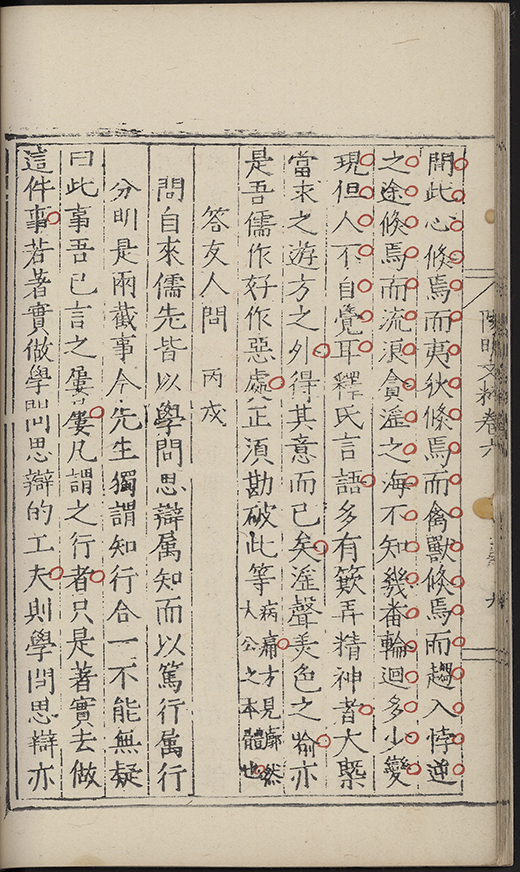 陽明文粹卷六
間此心倐焉而夷狄倐焉而禽獸倐焉而趨入悖逆
之途倐焉而流浪貪淫之海不知幾畨輪迴多少變
現但人不自覺耳釋氏言語多有簸弄精神者大槩
當求之遊方之外得其意而已矣淫聲美色之喻亦
是吾儒作好作惡處正須勘破此等病痛才見廓然
大公之本體也
答友人問 丙戌
問自來儒先皆以學問思辯属知而以篤行属行
分明是兩截事今先生獨謂知行合一不能無疑
曰此事吾已言之屢屢凡謂之行者只是著實去做
這件事若著實做學問思辯的工夫則學問思辯亦